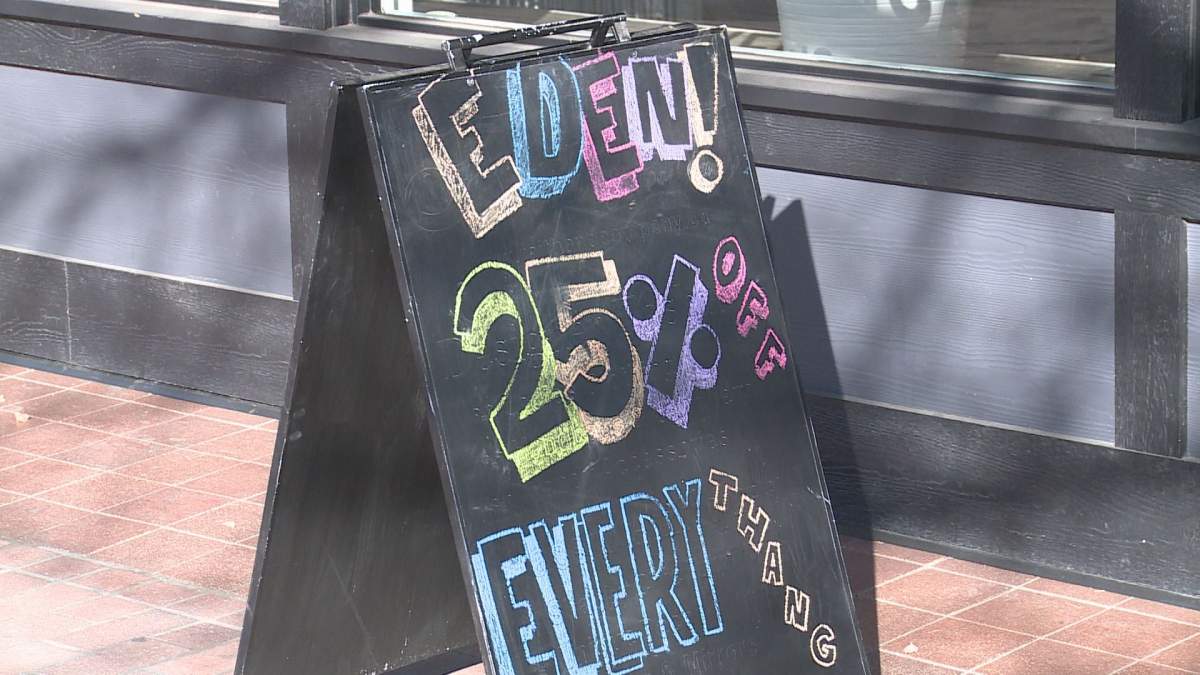 EDEN!
25% OFF
EVERY THANG